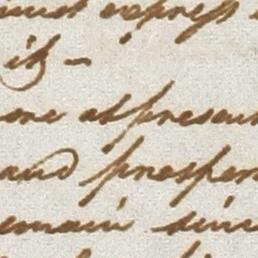 must express
it -
are at present
and prosper
remain since